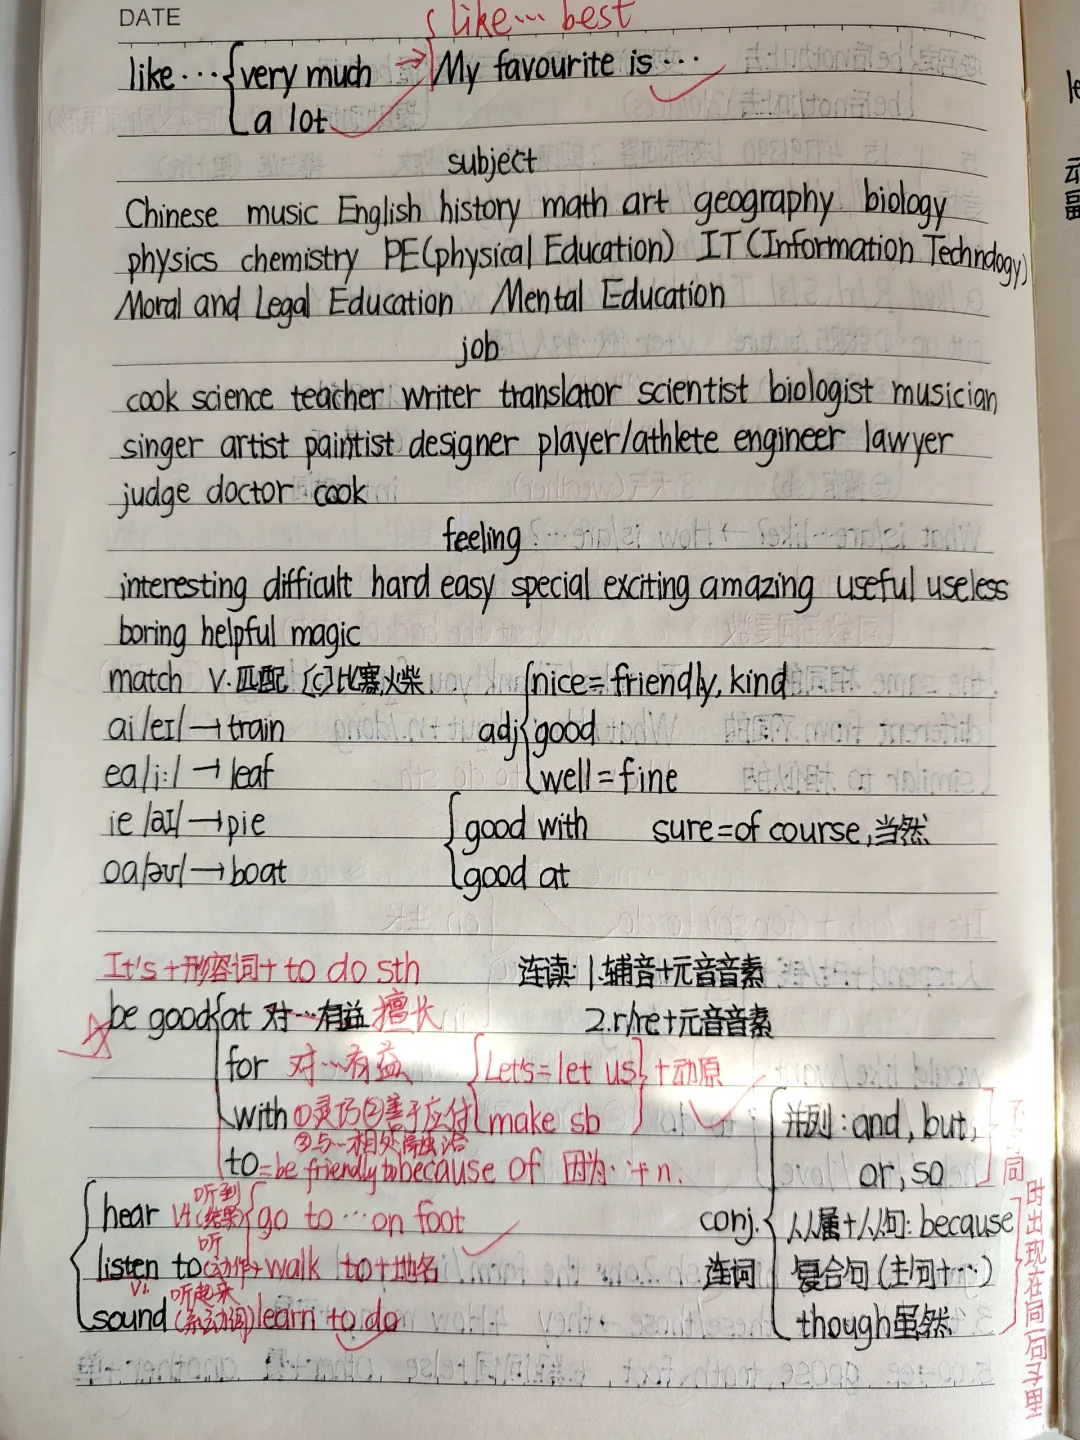 DATE
like… best
like… very much → My favourite is…
a lot
subject
Chinese music English history math art geography biology
physics chemistry PE(physical Education) IT(Information Technology)
Moral and Legal Education Mental Education
job
cook science teacher writer translator scientist biologist musician
singer artist paintist designer player/athlete engineer lawyer
judge doctor cook
feeling
interesting difficult hard easy special exciting amazing useful useless
boring helpful magic
match v.匹配 [C]比赛,火柴
nice=friendly, kind
ai/eɪ/→train
adj good
ea/i:/→leaf
well=fine
ie/aɪ/→pie
good with sure=of course,当然
oa/əʊ/→boat
good at
It's+形容词+to do sth
连读:1.辅音+元音音素
be good at 对…有益 擅长
2.r/re+元音音素
for 对…有益
Let's=let us +动原
with ①灵巧②善于应付
make sb
③与…相处融洽
并列:and, but,
or, so
to=be friendly to
because of 因为…+n.
hear vt 听到(结果)
go to…on foot
conj. 从属+从句:because
listen to 听(动作)
walk to+地名
连词 复合句(主句+…)
sound 听起来(系动词)
learn to do
though虽然
不同时出现在同一句子里